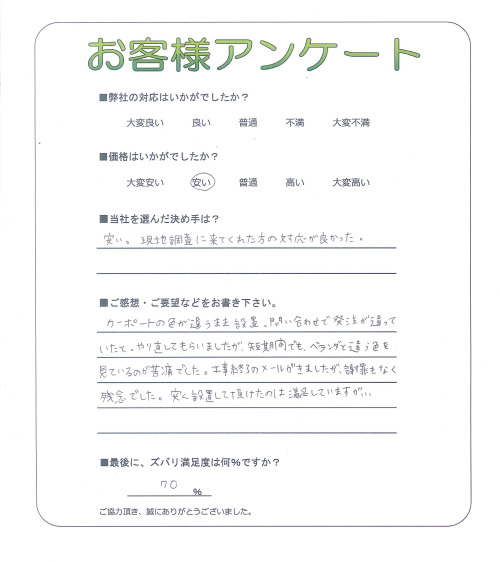 お客様アンケート
■弊社の対応はいかがでしたか？
大変良い 良い 普通 不満 大変不満
■価格はいかがでしたか？
大変安い 安い 普通 高い 大変高い
■当社を選んだ決め手は？
安い。現地調査に来てくれた方の対応が良かった。
■ご感想・ご要望などをお書き下さい。
カーポートの色が違うまま設置。問い合わせで発注が違って
いたと。やり直してもらいましたが、短期間でも、ベランダと違う色を
見ているのが苦痛でした。工事終了のメールがきましたが、謝罪もなく
残念でした。安く設置して頂けたのは満足していますが、、
■最後に、ズバリ満足度は何%ですか？
70 %
ご協力頂き、誠にありがとうございました。